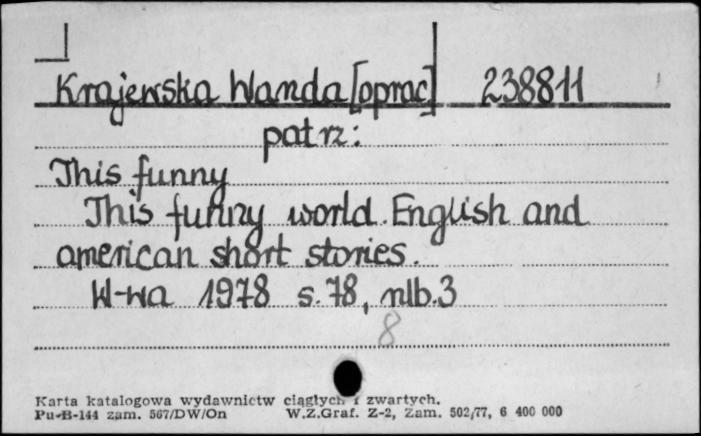 Krajewska Wanda [oprac] 238811
patrz:
This funny
This funny world. English and
american short stories.
W-wa 1978 s. 78, nlb. 3
8
Karta katalogowa wydawnictw ciągłych i zwartych.
Pu-B-144 zam. 567/DW/On W.Z.Graf. Z-2, Zam. 502/77, 6 400 000